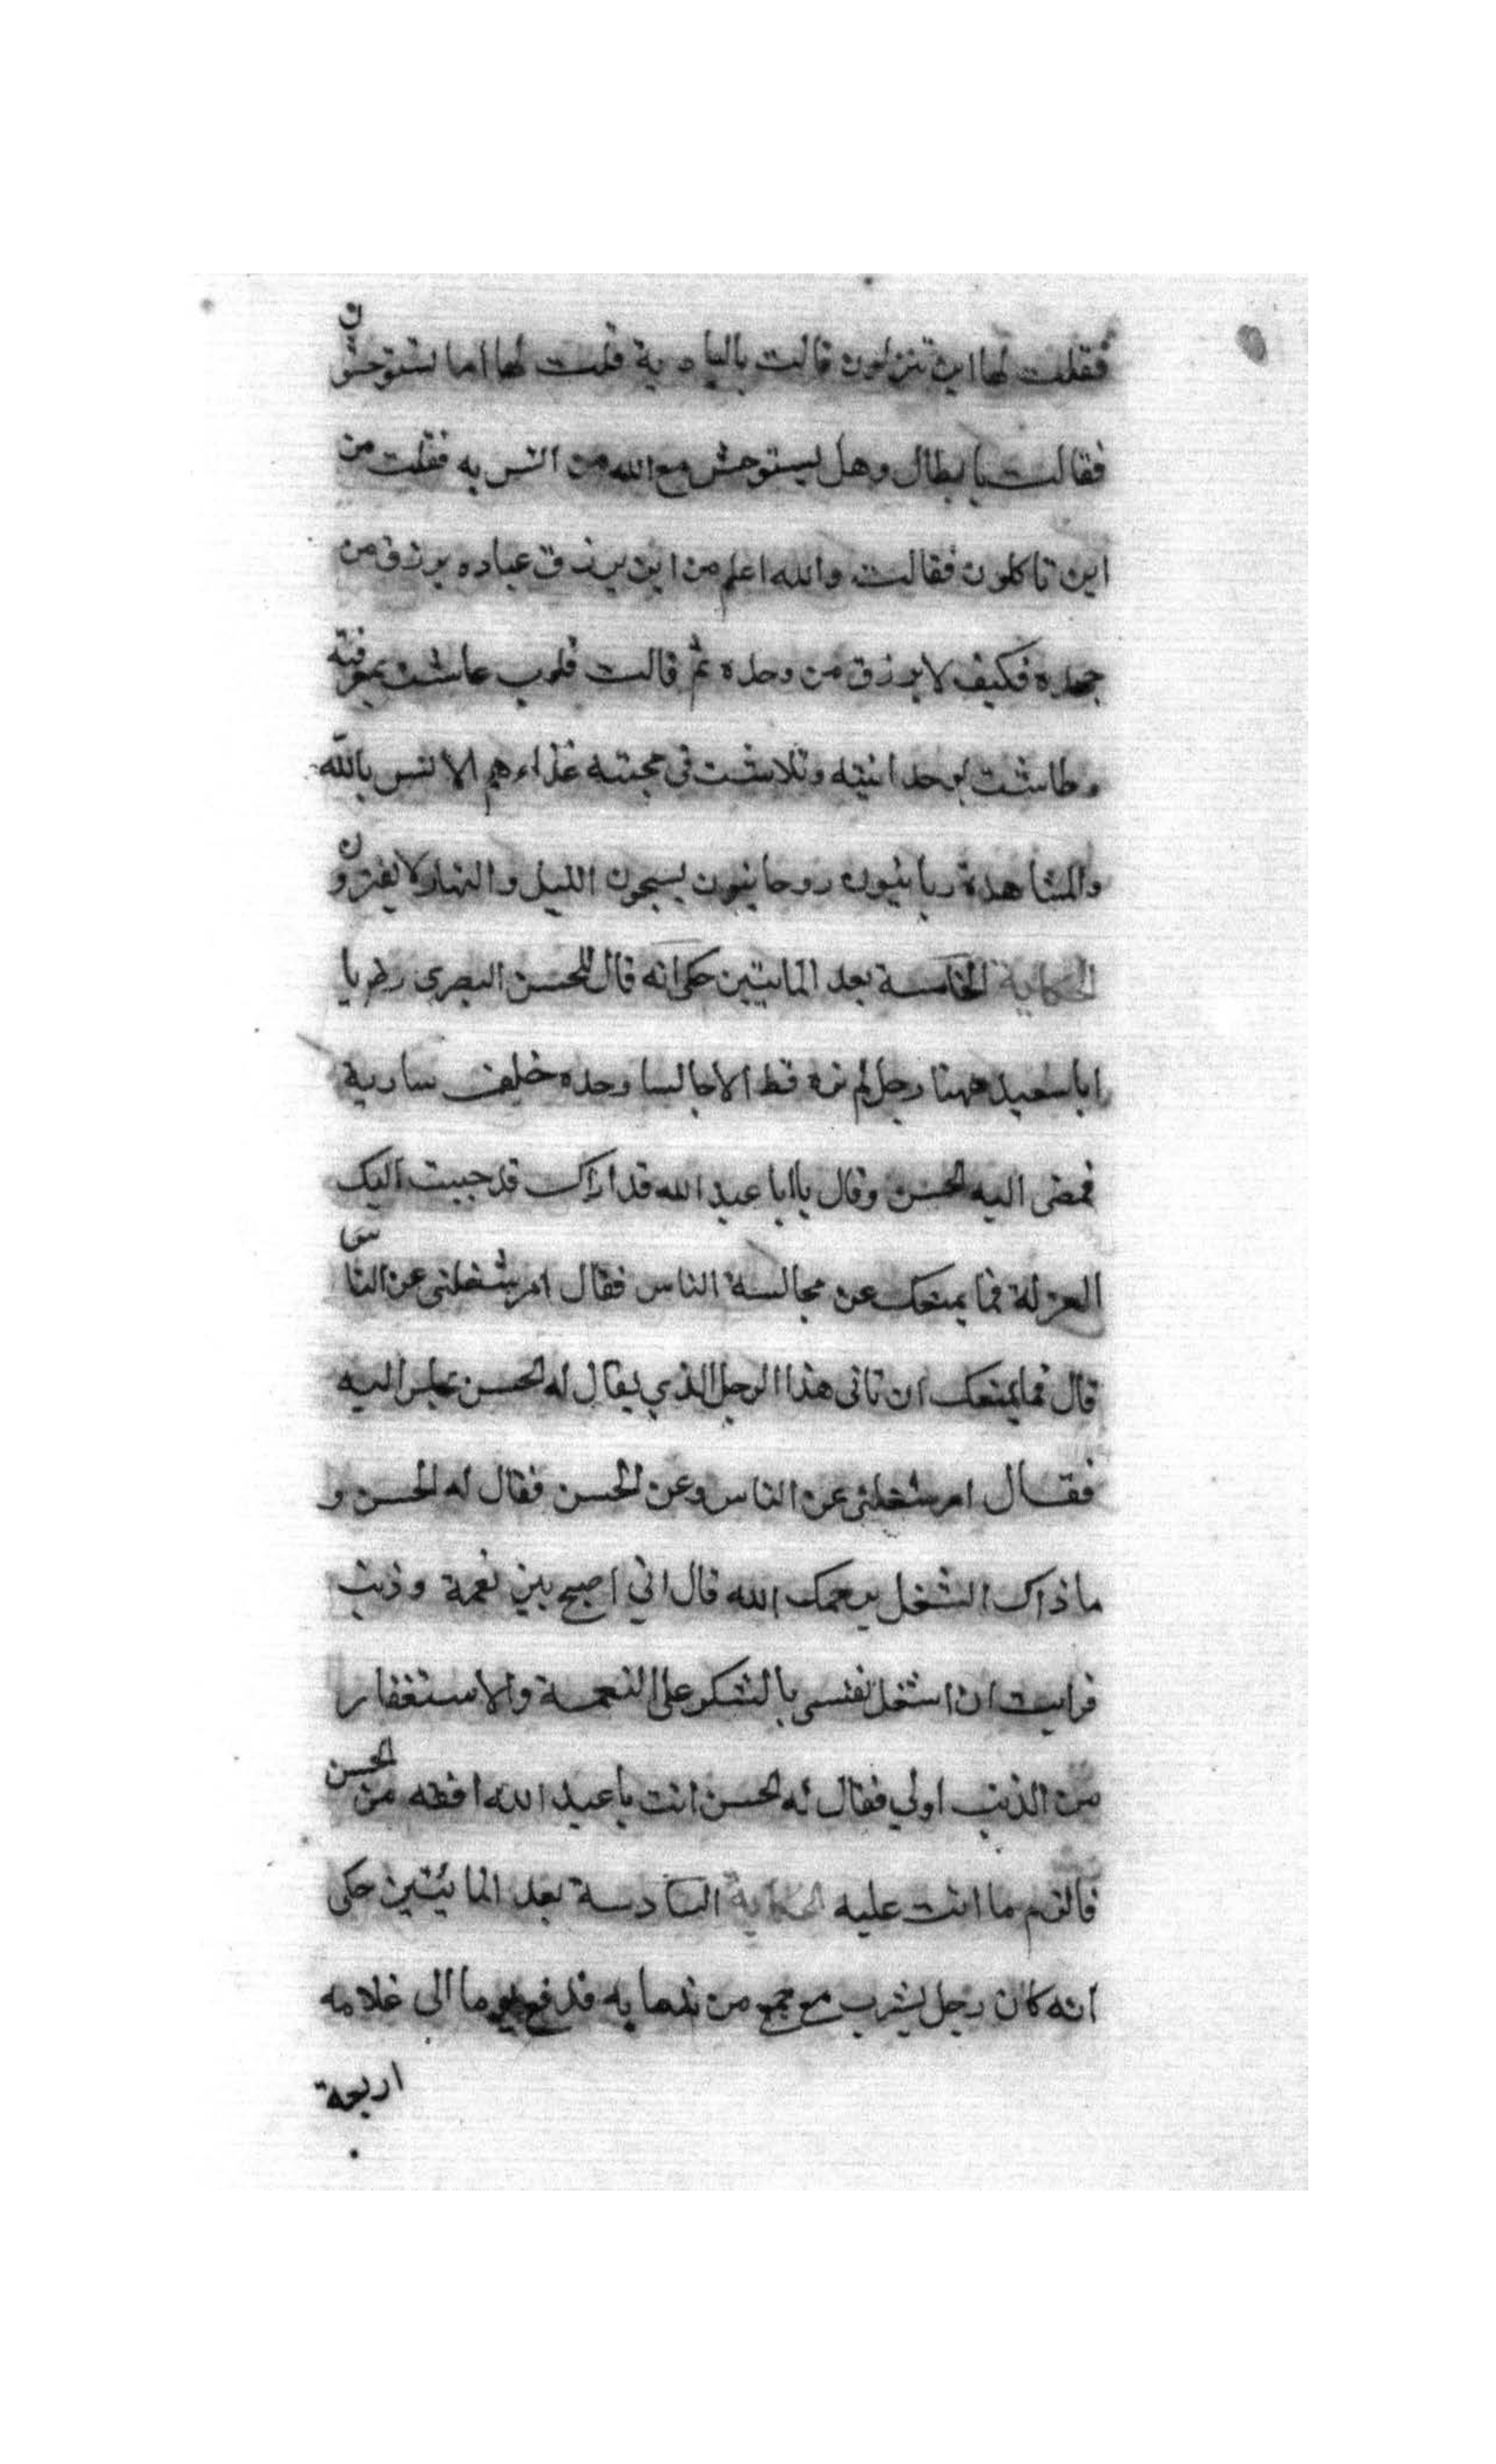 فقلت لها اين تنزلون قالت بالبادية قلت لها اما تستوحشون
فقالت يا بطال وهل يستوحش مع الله من انس به فقلت من
اين تاكلون فقالت والله اعلم من اين يرزق عباده يرزق من
جحده فكيف لا يرزق من وحده ثم قالت قلوب عاشت بمعرفته
وطاشت بوحدانيته وتلاشت في محبته غذاءهم الانس بالله
والمشاهدة ربانيون روحانيون يسبحون الليل والنهار لا يفترون
الحكاية الخامسة بعد المايتين حكي انه قال للحسن البصري يا
ابا سعيد ههنا رجل لم نره قط الا جالسا وحده خلف سارية
فمضى اليه الحسن وقال يا ابا عبد الله قد اراك قد حببت اليك
العزلة فما يمنعك عن مجالسة الناس فقال امر شغلني عن الناس
قال فما يمنعك ان تاتي هذا الرجل الذي يقال له الحسن تجلس اليه
فقال امر شغلني عن الناس وعن الحسن فقال له الحسن و
ما ذاك الشغل يرحمك الله قال اني اصبح بين نعمة وذنب
فرايت ان اشغل نفسي بالشكر على النعمة والاستغفار
من الذنب اولي فقال له الحسن انت يا عبد الله افقه من الحسن
فالزم ما انت عليه الحكاية السادسة بعد المائيتين حكي
انه كان رجل يشرب مع جمع من ندمايه فدفع يوما الى غلامه
اربعة